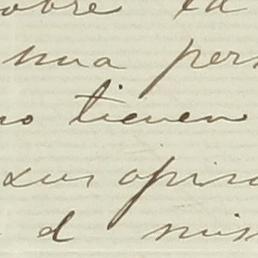 sobre la
una pers
no tienen
sus opinio
el mis